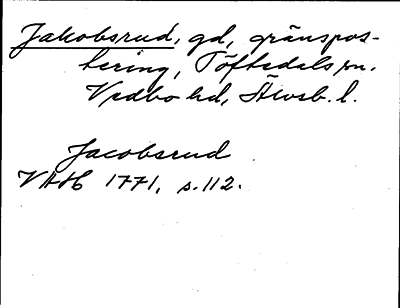 Jakobsrud, gd, gränspos-
tering, Töftedals sn.
Vedbo hd, Älvsb. l.
Jacobsrud
VAH 1771, s. 112.